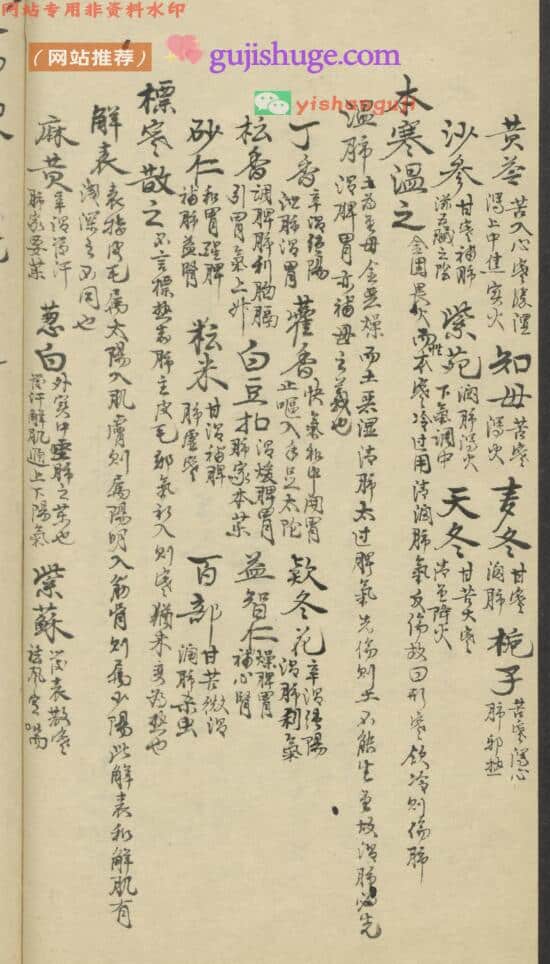 网站专用非资料水印
（网站推荐） gujishuge.com
yishunguji
黄芩 苦入心寒勝濕 瀉上中焦实火 知母 苦寒瀉火 麦冬 甘寒润肺 栀子 苦寒瀉心肺邪热
沙参 甘寒補肺 滋五臟之陰 紫苑 润肺瀉火 下氣調中 天冬 甘苦大寒 清金降火
本寒温之 金固畏火而性本寒冷过用清润肺氣反傷故曰形寒飲冷则傷肺
温肺 土为金母金惡燥而土惡湿清肺太过脾氣先傷则土不能生金故温肺必先
温脾胃亦補母之義也
丁香 辛温纯陽 泄肺温胃 藿香 快氣和中開胃 止嘔入手足太陰 欵冬花 辛温纯陽 温肺利氣
枟香 調脾肺利胸膈 引胃氣上升 白豆扣 温煖脾胃 肺家本藥 益智仁 燥脾胃 補心腎
砂仁 和胃醒脾 補肺益腎 糯米 甘温補脾肺虚寒 百部 甘苦微温 润肺杀虫
標寒散之 不言標热者肺主皮毛邪氣初入则寒猶未变为热也
解表 表指皮毛属太陽入肌膚则属陽明入筋骨则属少陽此解表和解肌有
浅深之不同也
麻黄 辛温发汗 肺家要藥 葱白 外实中空肺之菜也 发汗解肌通上下陽氣 紫蘇 发表散寒 祛風定喘